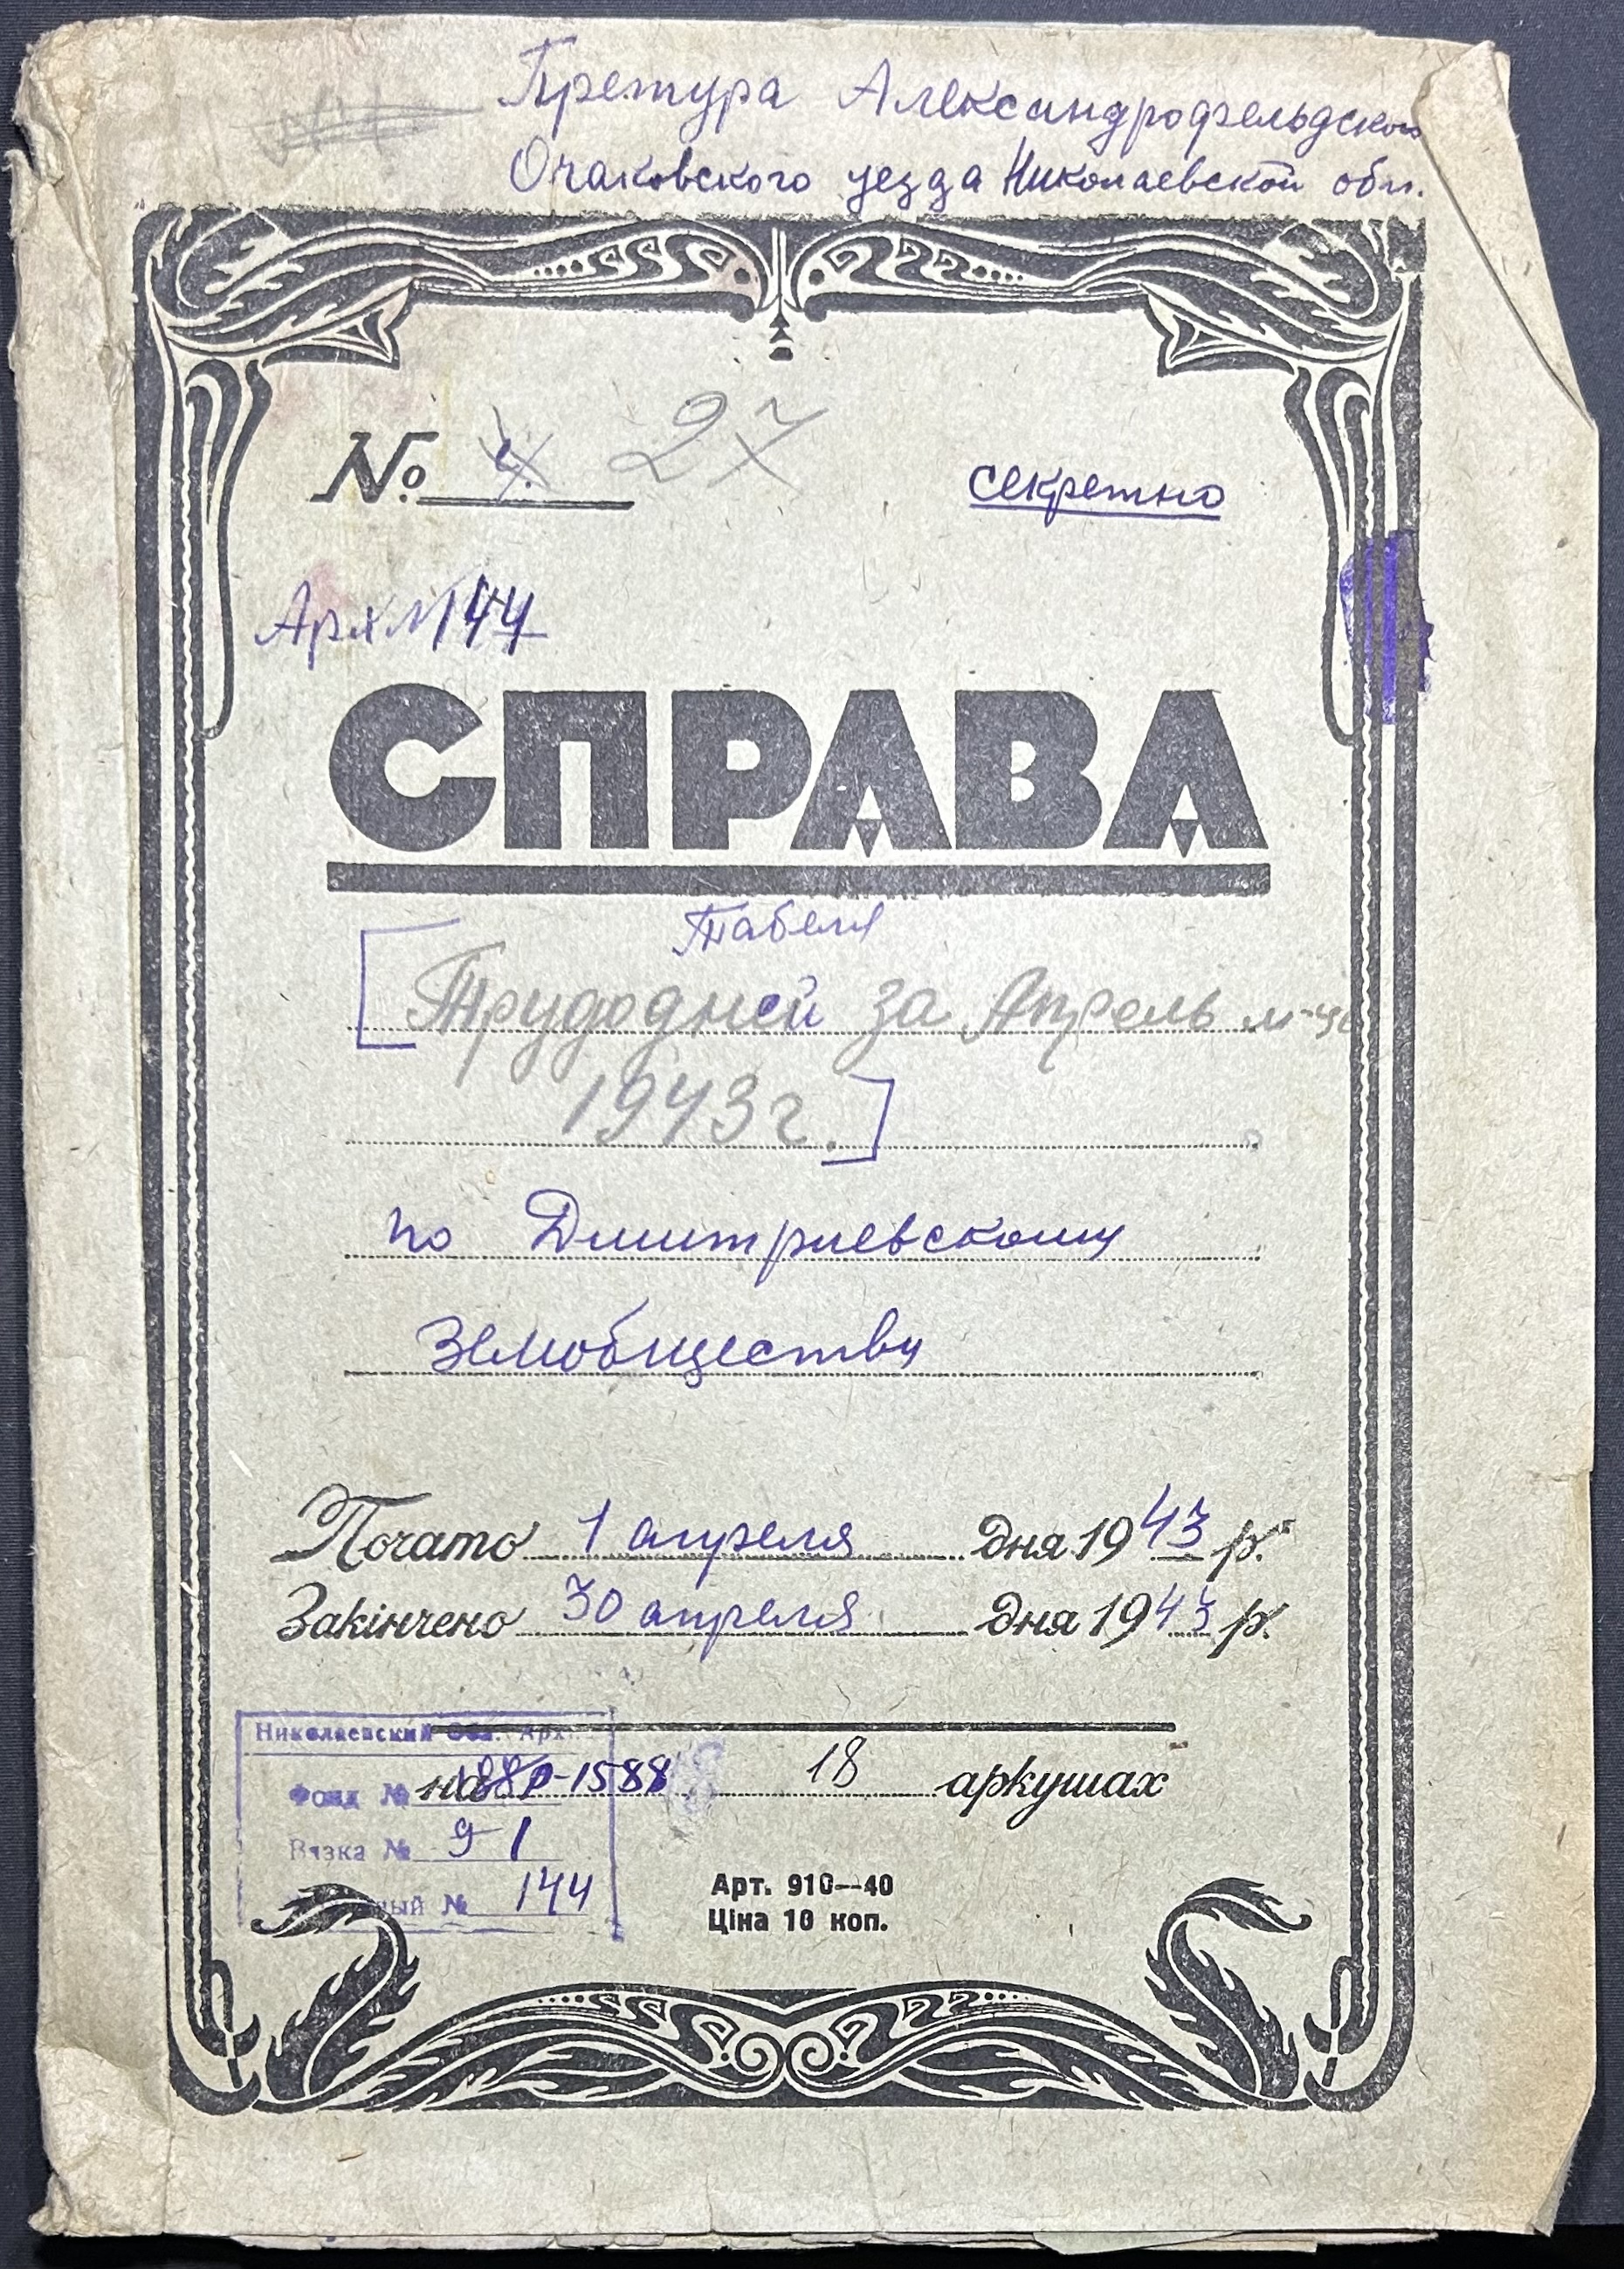 Претура Александрофельдского
Очаковского уезда Николаевской обл.
№ 4 27
секретно
Арх № 144
СПРАВА
Табеля
[Трудодней за Апрель м-ц
1943 г.]
по Дмитриевскому
Земобществу
Почато 1 апреля дня 1943 р.
Закінчено 30 апреля дня 1943 р.
Николаевский Обл. Арх.
на 18 аркушах
Фонд № Р-1588
Вязка № 9 1
№ 144
Арт. 910—40
Ціна 10 коп.